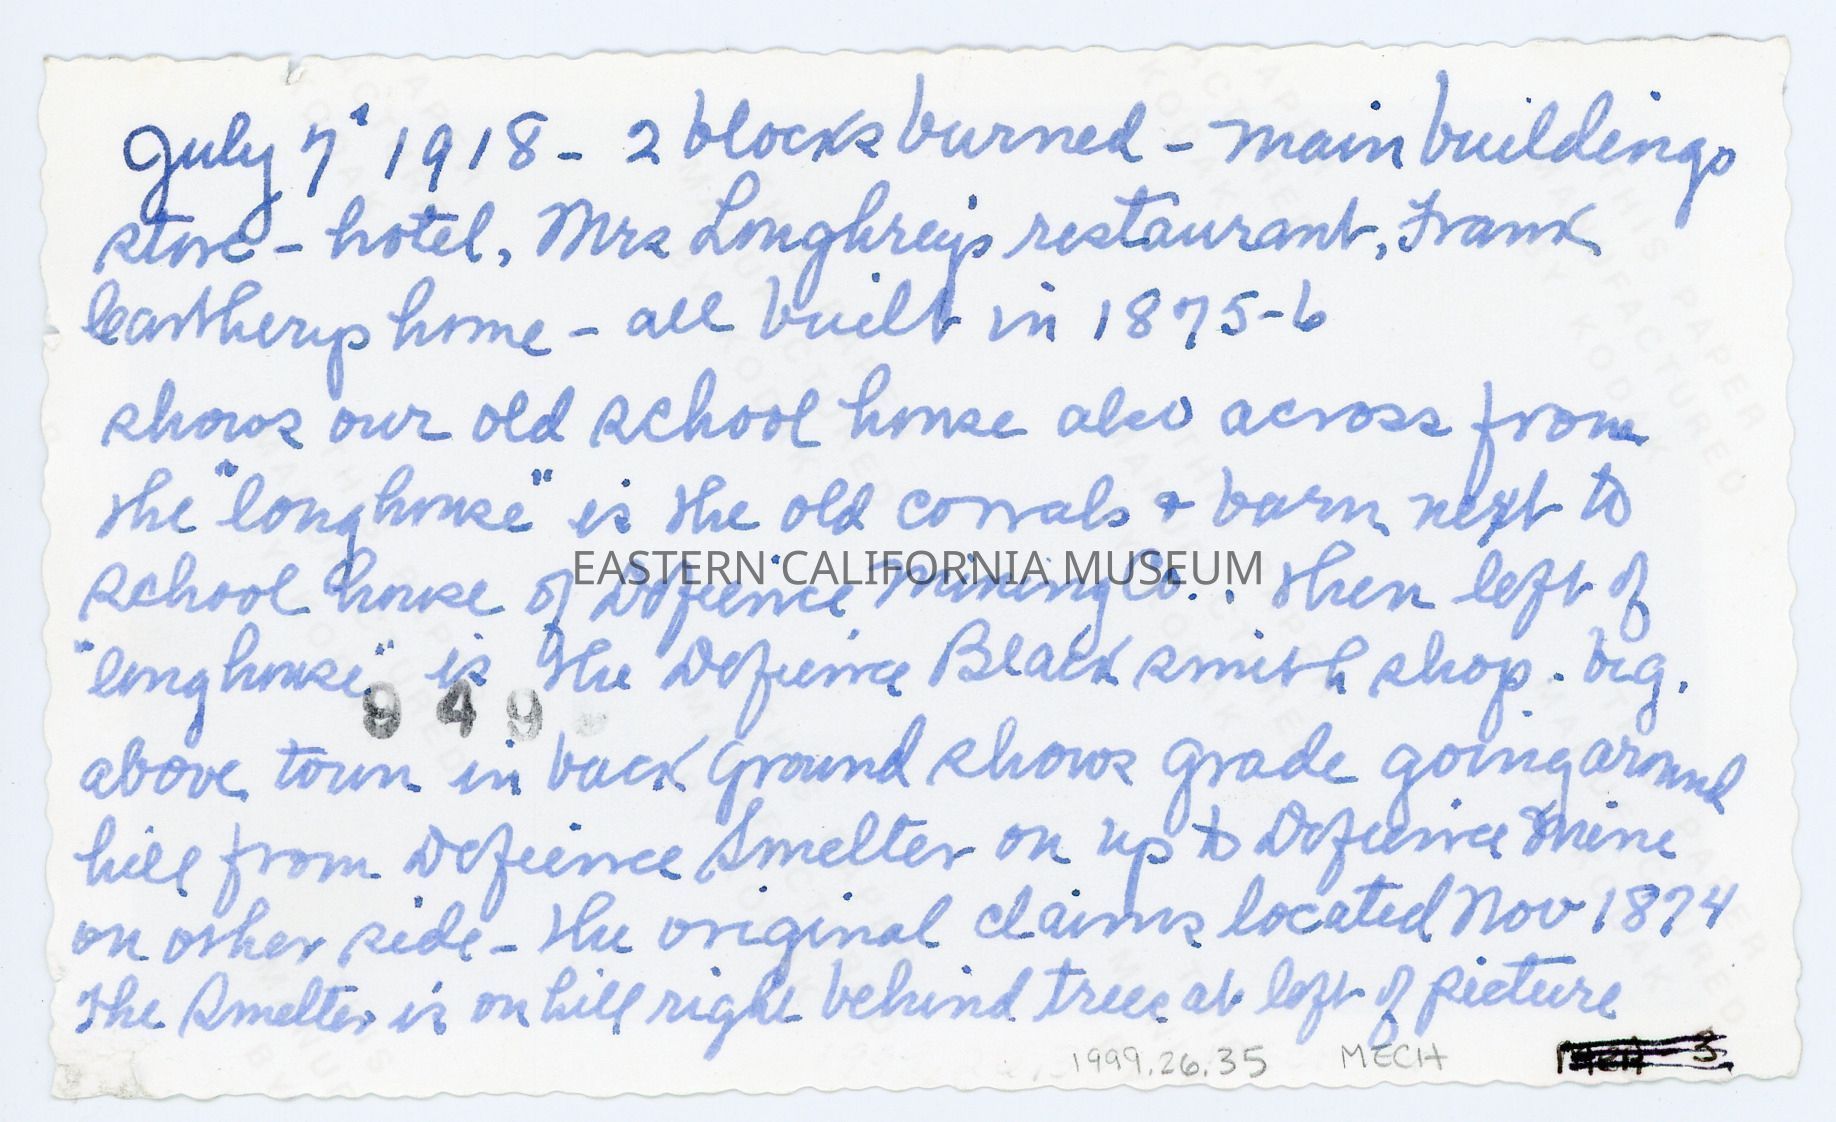 July 7" 1918 - 2 blocks burned - main buildings
store - hotel, Mrs Loughreys restaurant, Frank
Cartherys home - all built in 1875-6
shows our old school house also across from
the "longhouse" is the old corrals & barn next to
school house of Defience Mining Co.. then left of
EASTERN CALIFORNIA MUSEUM
"longhouse" is the Defience Blacksmith shop. big.
949
above town in back ground shows grade going around
hill from Defience Smelter on up to Defience Mine
on other side - the original claims located Nov 1874
The Smelter is on hill right behind trees at left of picture
1999.26.35 MECH